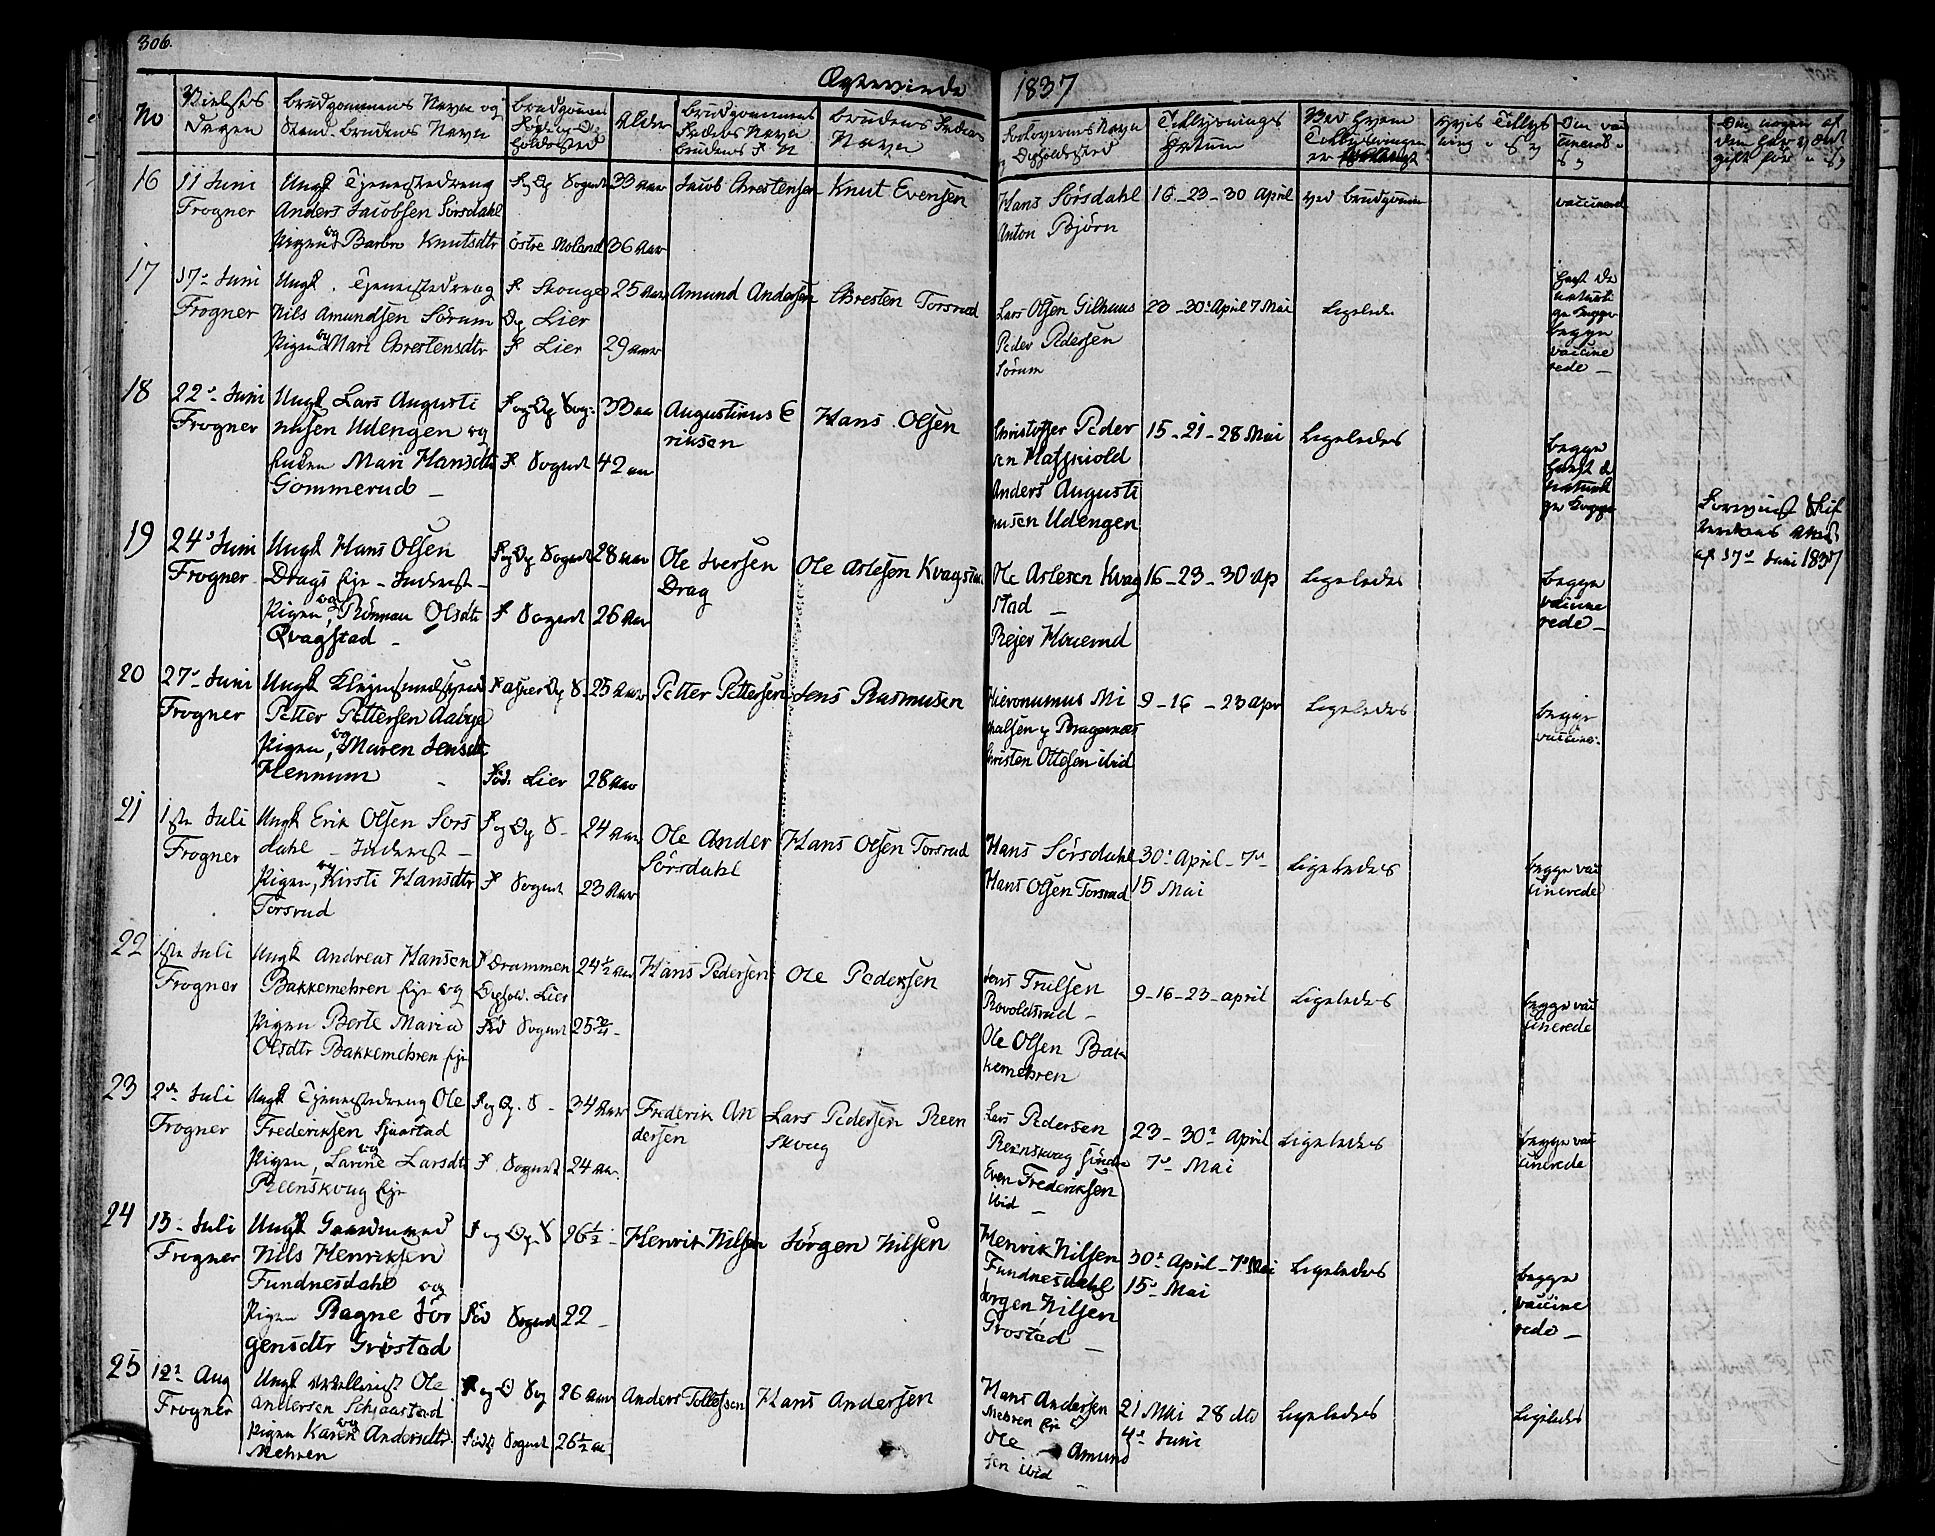 306.
Ægteviede 1837
No
Vielses Dagen
Brudgommens Navn og Stand. Brudens Navn
Brudgommens Føde og Opholdssted
Alder
Brudgommens Faders Navn
Brudens Faders Navn
Forloverens Navn og Opholdssted
Tillysnings Datum
Ved hvem Tillysningen er
16
11 Juni
Frogner
Ungk Tjenestedreng
Anders Jacobsen Sørsdahl
og
Pigen Barbro Knutsdtr
F og Op Sognet
østre Moland
33 Aar
36 Aar
Jacob Chrestensen
Knut Evensen
Hans Sørsdahl
Anton Bjørn
16-23-30 April
Ved Brudgommen
vaccinered
17
17de Juni
Frogner
Ungk. Tjenestedreng
Nils Amundsen Sørum
og
Pigen Mari Chrestensdtr
F Skouge
Op Lier
F Lier
25 Aar
29 Aar
Amund Andersen
Chresten Torsrud
Lars Olsen Gilhuus
Peder Pedersen
Sørum
23-30 April 7 Mai
Ligelede
begge
vaccine
rede -
18
22de Juni
Frogner
Ungk Lars Augusti
nusen Udengen og
Enken Mari Hansdtr
Gommerud -
F og Op Sog.
F Sognet
33 aa
42 aa
Augustinus E
riksen
Hans Olsen
Christoffer Peder
sen
Anders Augusti
nusen Udengen
15-21-28 Mai
Ligeledes
begge
havt de
naturli
ge Kopper
Forevist Skif
af 17de Juni 1837
19
24de Juni
Frogner
Ungk Hans Olsen
Drags Eje - Inderst -
og
Pigen, Rønnau Olsdtr
Qvagstad -
F og Op Sognet
F Sognet
28 Aar
26 Aar
Ole Iversen
Drag
Ole Arlesen Kvagstad
Ole Arlesen Kvag
stad -
Rejer Houerud
16-23-30 Ap
Ligeledes
begge
vaccine
rede -
20
27de Juni
Frogner
Ungk
Petter Pettersen Aabye
og
Pigen, Maren Jensdtr
Hennum
F Asker Op S
Fød. Lier
25 Aar
28 Aar
Petter Pettersen
Jens Rasmusen
Hieronumus Mi
halsen Bragernæs
Christen Ottesen ibid
9-16-23 Apr
Ligeledes
begge
vaccine.
21
1ste Juli
Frogner
Ungk Erik Olsen Sørs
dahl - Inderst -
og
Pigen, Kirsti Hansdtr
Torsrud
F og Op S -
F Sognet
24 Aar
23 Aar
Ole Ander
Sørsdahl
Hans Olsen Torsrud
Hans Sørsdahl
Hans Olsen Torsrud
30 April - 7de
15 Mai
Ligeledes
begge vac
cinerede
22
1ste Juli
Frogner
Ungk Andreas Hansen
Bakkemehren Eje og
Pigen Berte Maria
Olsdtr Bakkemehren Eje
F Drammen
Ophold. Lier
Fød Sognet
24½ Aar
Hans Pedersen
Ole Pedersen
Jens Trulsen
Rovoldsrud -
Ole Olsen Bak
kemehren
9-16-23-april
Ligeledes
begge vac
cinerede
23
2den Juli
Frogner
Ungk Tjenestedreng Ole
Frederiksen Sjaastad
og
Pigen, Larine Larsdtr
Reenskoug Eje
F og Op. S -
F. Sognet
34 Aar
24 Aar
Frederik An
dersen
Lars Pedersen Reen
skoug
Lars Pedersen
Reenskoug
Even Frederiksen
ibid -
23-30 April
7de Mai
Ligeledes
begge vac
cinerede
24
13 Juli
Frogner
Ungk Gaardmand
Nils Henriksen
Fundnesdahl og
Pigen Ragne Jør
gensdtr Grøstad
F og Op. S
Fød Sognet
26½
22 -
Henrik Nilsen
Jørgen Nilsen
Henrik Nilsen
Fundnesdahl
Jørgen Nilsen
Grøstad -
30 April - 7de Mai
15de Mai
Ligeledes
begge
vaccine
rede -
25
12 Aug
Frogner
Ungk Ole
Andersen Schjaastad
og
Pigen Karen Andersdtr
Mehren
F og O Sog
Født Sognet
26 Aar
26½ Aa
Anders Tollefsen
Hans Andersen
Hans Andersen
Mehren Eje
Ole Amund
sen ibid
21 Mai 28 do
4de Juni
Ligeledes
Ligeledes